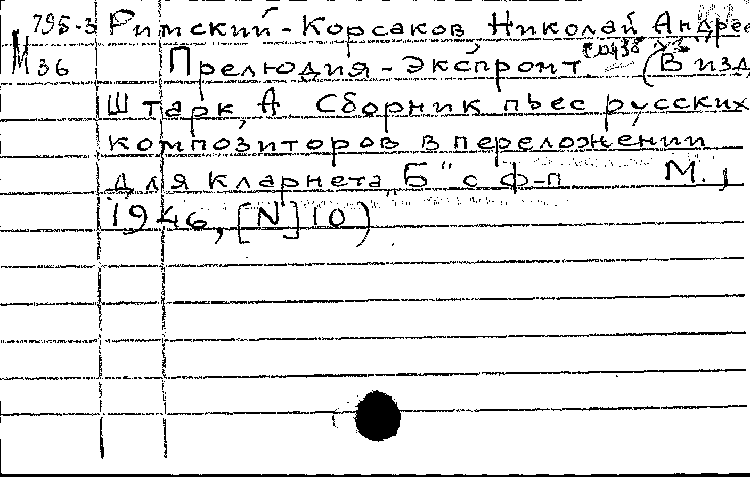 М 795-3 Римский-Корсаков Николай Андрее
36 Прелюдия-Экспромт. (В изд
Штарк, А. Сборник пьес русских
композиторов в переложении
для кларнета „Б" с ф-п М.,
1946, [N] 10)